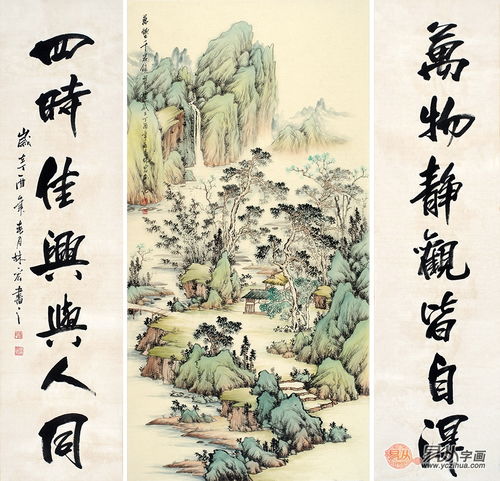 萬物靜觀皆自得
四時佳興與人同
歲在丁酉年春月林宏書之
易从字画
www.yczihua.com